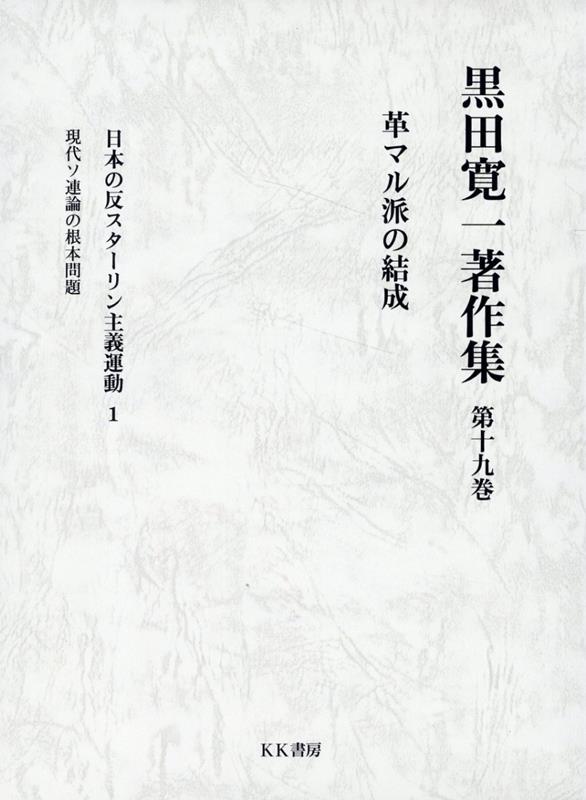 黒田寛一著作集 第十九巻
革マル派の結成
日本の反スターリン主義運動 1
現代ソ連論の根本問題
KK書房